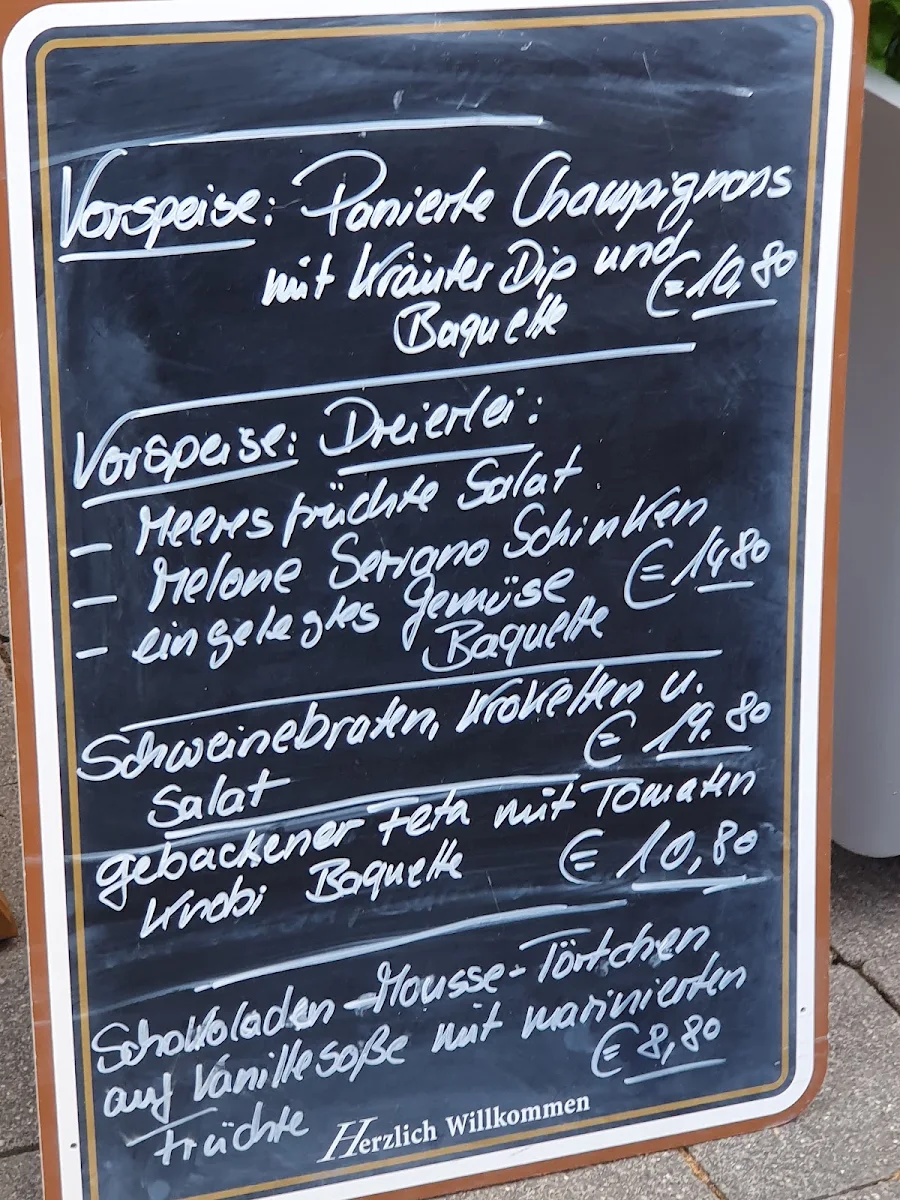 Vorspeise: Panierte Champignons
mit Kräuter Dip und
Baquette € 10,80
Vorspeise: Dreierlei:
- Meeresfrüchte Salat
- Melone Serrano Schinken
- eingelegtes Gemüse € 14,80
Baquette
Schweinebraten, Kroketten u.
Salat € 19.80
gebackener Feta mit Tomaten
Knobi Baquette € 10,80
Schokoladen-Mousse-Törtchen
auf Vanillesoße mit marinierten
Früchte € 8,80
Herzlich Willkommen